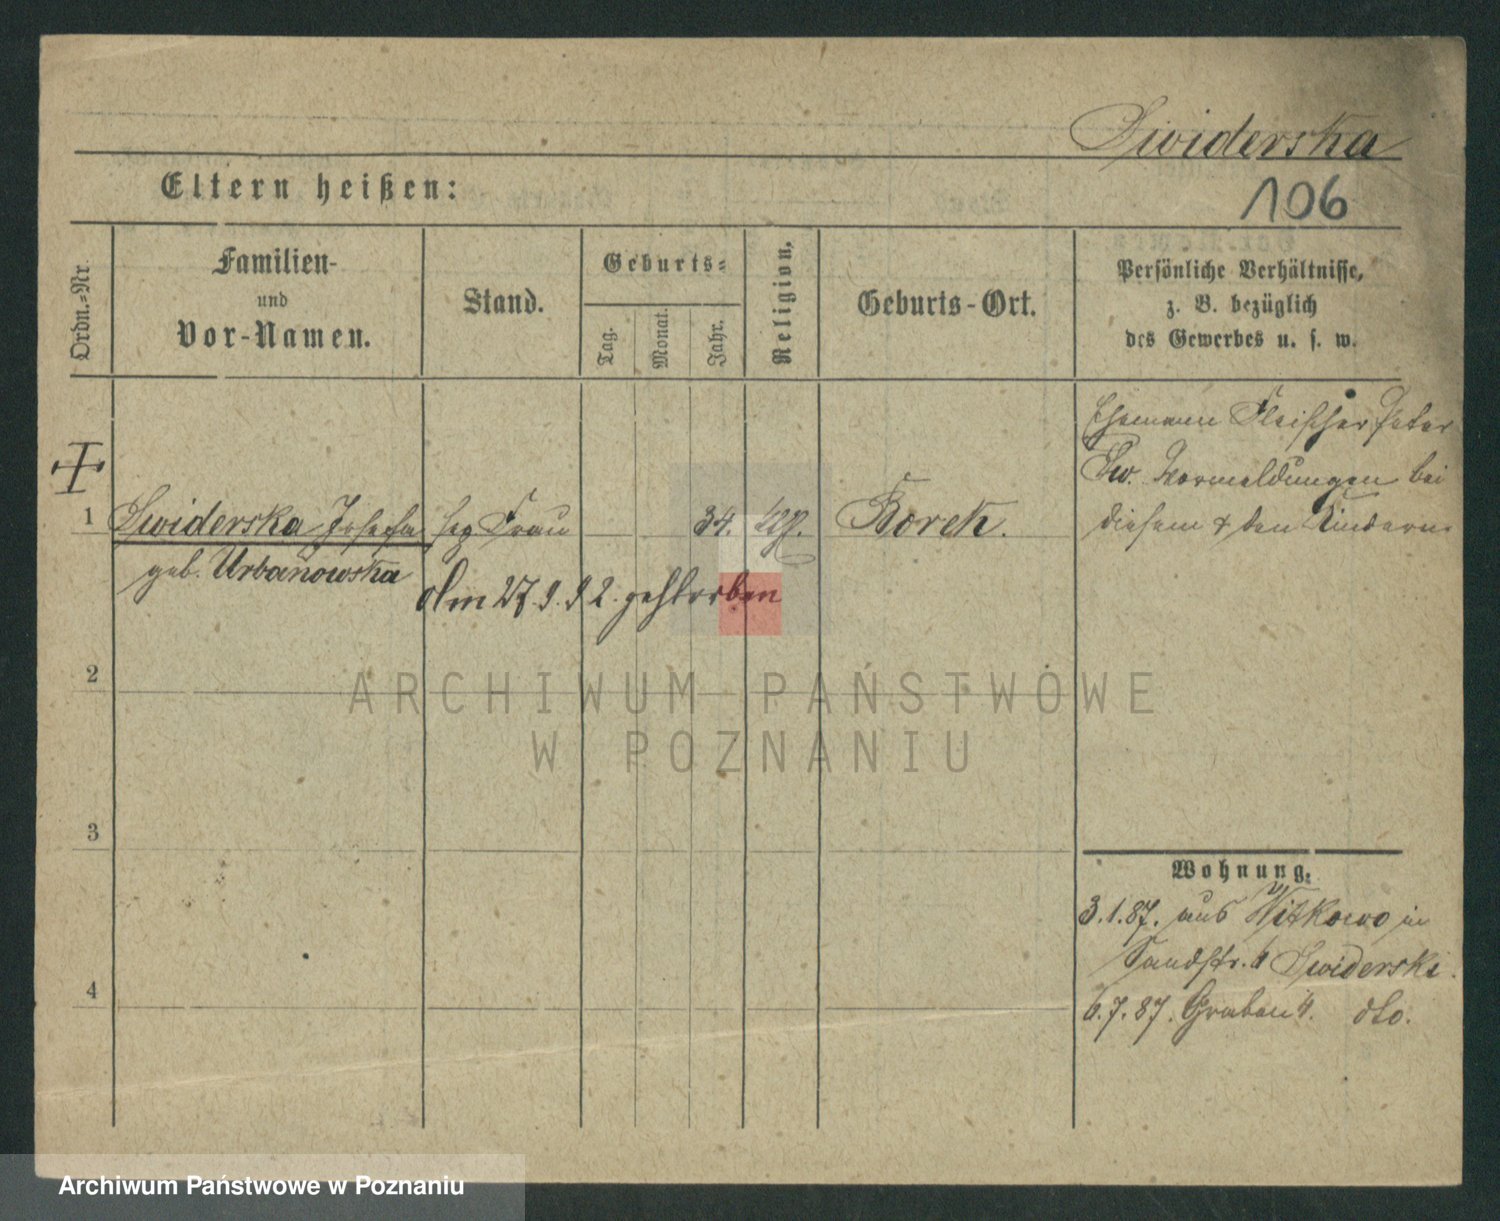 Swiderska
106
Eltern heißen:
Ordn.=Nr.
Familien-
und
Vor-Namen.
Stand.
Geburts=
Tag.
Monat.
Jahr.
Religion.
Geburts-Ort.
Persönliche Verhältnisse,
z. B. bezüglich
des Gewerbes u. s. w.
Ehemann Fleischer Peter
Sw. Vormeldungen bei
diesem & den Kindern.
1 Swiderska Josefa Frau 34. Borek.
geb. Urbanowska
Am 27.9.92. gestorben
2
ARCHIWUM PAŃSTWOWE
W POZNANIU
3
4
Wohnung.
3.1.87. aus Witkowo in
Sandstr. Swiderski.
6.7.87. Graben 4. dto.
Archiwum Państwowe w Poznaniu